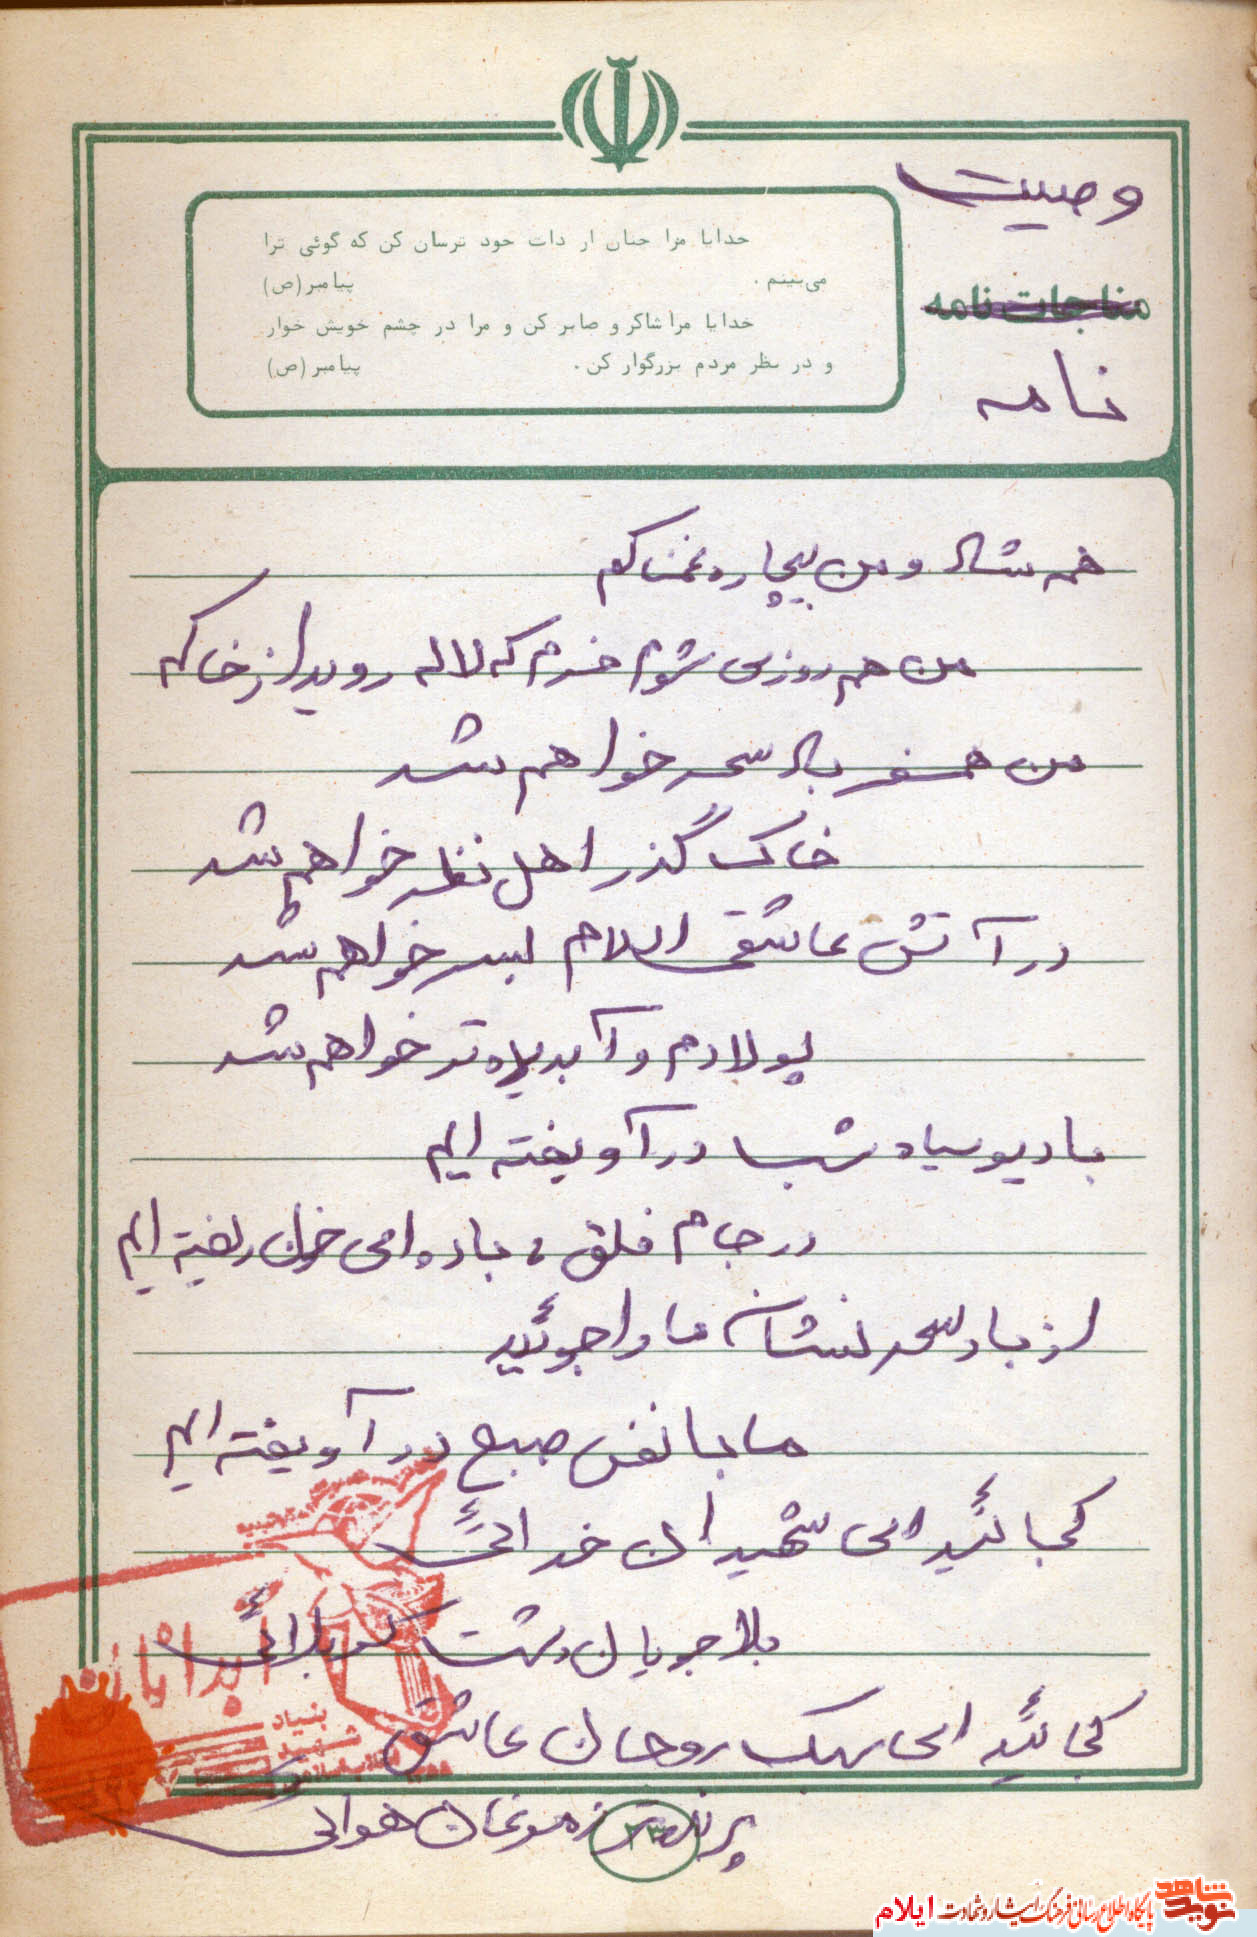 وصیت
مناجات نامه
نامه
خدایا مرا چنان از ذات خود ترسان کن که گوئی ترا
می‌بینم . پیامبر(ص)
خدایا مرا شاکر و صابر کن و مرا در چشم خویش خوار
و در نظر مردم بزرگوار کن . پیامبر(ص)
همه شاد و من بیچاره غمناکم
من هم روزی شوم خرم که لاله روید از خاکم
من همسفر باد سحر خواهم شد
خاک گذر اهل نظر خواهم شد
در آتش عاشقی اسلام بسر خواهم شد
پولادم و آبدیده تر خواهم شد
با دیو سیاه شب در آویخته ایم
در جام فلق باده ای خون ریخته ایم
از باد سحر نشان ما را جوئید
ما با نفس صبح در آویخته ایم
کجائید ای شهیدان خدائی
بلا جویان دشت کربلائی
کجائید ای سبک روحان عاشق
پرنده‌تر ز مرغان هوائی
بنیاد
شهید
۲۳
نوید شاهد
پایگاه اطلاع رسانی فرهنگ ایثار و شهادت ایلام